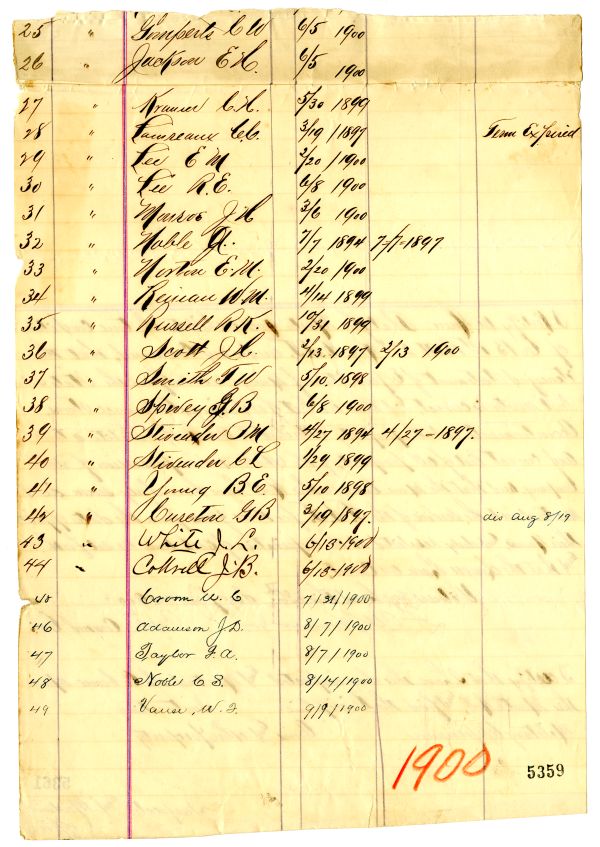 25 " Gomperts C W 6/5 1900
26 " Jackson E. C. 6/5 1900
27 " Kramer C. H. 5/30 1899
28 " Lamreaux C. C. 3/19/1897 Term Expired
29 " Lee E M 2/20/1900
30 " Lee R. E. 6/8 1900
31 " J C 3/6 1900
32 " Noble A. 7/7 1894 7-7-1897
33 " Norton E. M. 2/20 1900
34 " W M. 4/14 1899
35 " Russell R. K. 10/31 1899
36 " Scott J. C. 2/13. 1897 2/13 1900
37 " Smith T W 5/10. 1898
38 " Spivey G B 6/8 1900
39 " Stivender M 4/27 1894 4/27-1897.
40 " Stivender C L 1/29 1899
41 " Young B. E. 5/10 1898
42 " Cureton G B 3/19/1897. dis aug 8/19
43 " White J. L. 6/13-1900
44 " Cottrell J. B. 6/13-1900
45 Croom W. C 7/31/1900
46 Adamson J. D. 8/7/1900
47 Taylor F. A. 8/7/1900
48 Noble C S. 8/14/1900
49 W. 9/9/1900
1900
5359